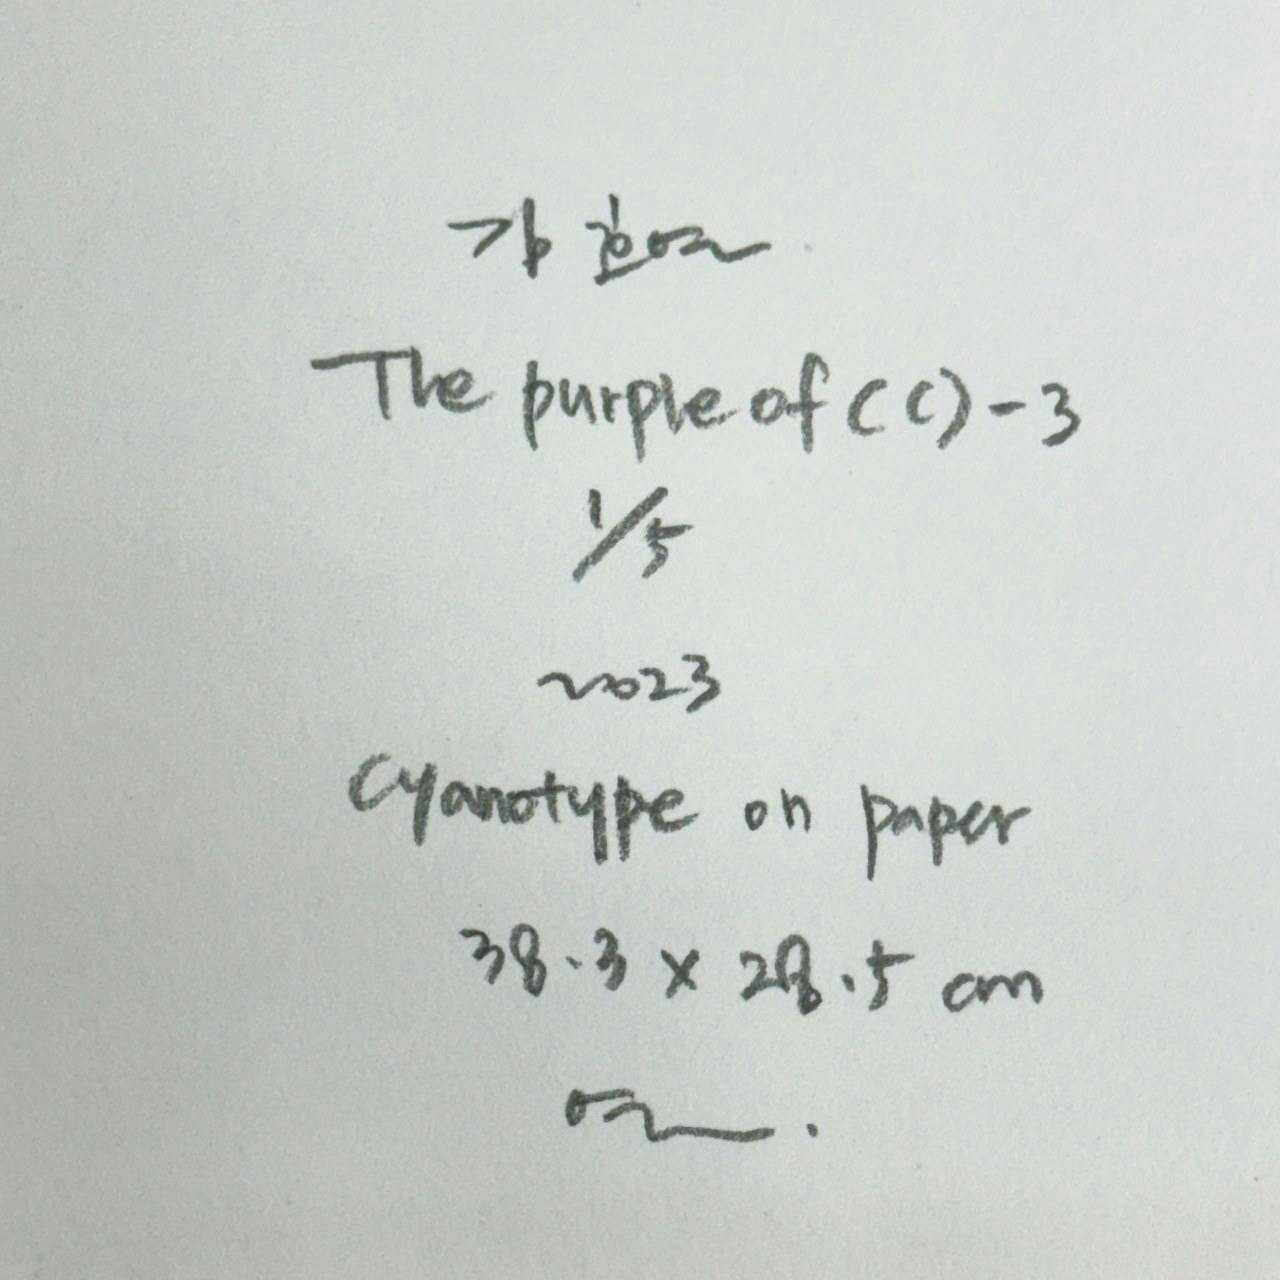 김효연
The purple of CC)-3
1/5
2023
Cyanotype on paper
38.3 x 28.5 cm